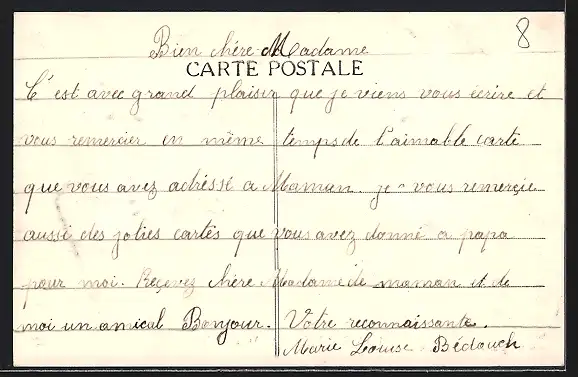 8
Bien chère Madame
CARTE POSTALE
C'est avec grand plaisir que je viens vous écrire et
vous remercier en même temps de l'aimable carte
que vous avez adréssé a Maman. je vous remerçie
aussi des jolies cartés que vous avez donné a papa
pour moi. Reçevez chère Madame de maman et de
moi un amical Bonjour. Votre reconnaissante.
Marie Louise Bédouch